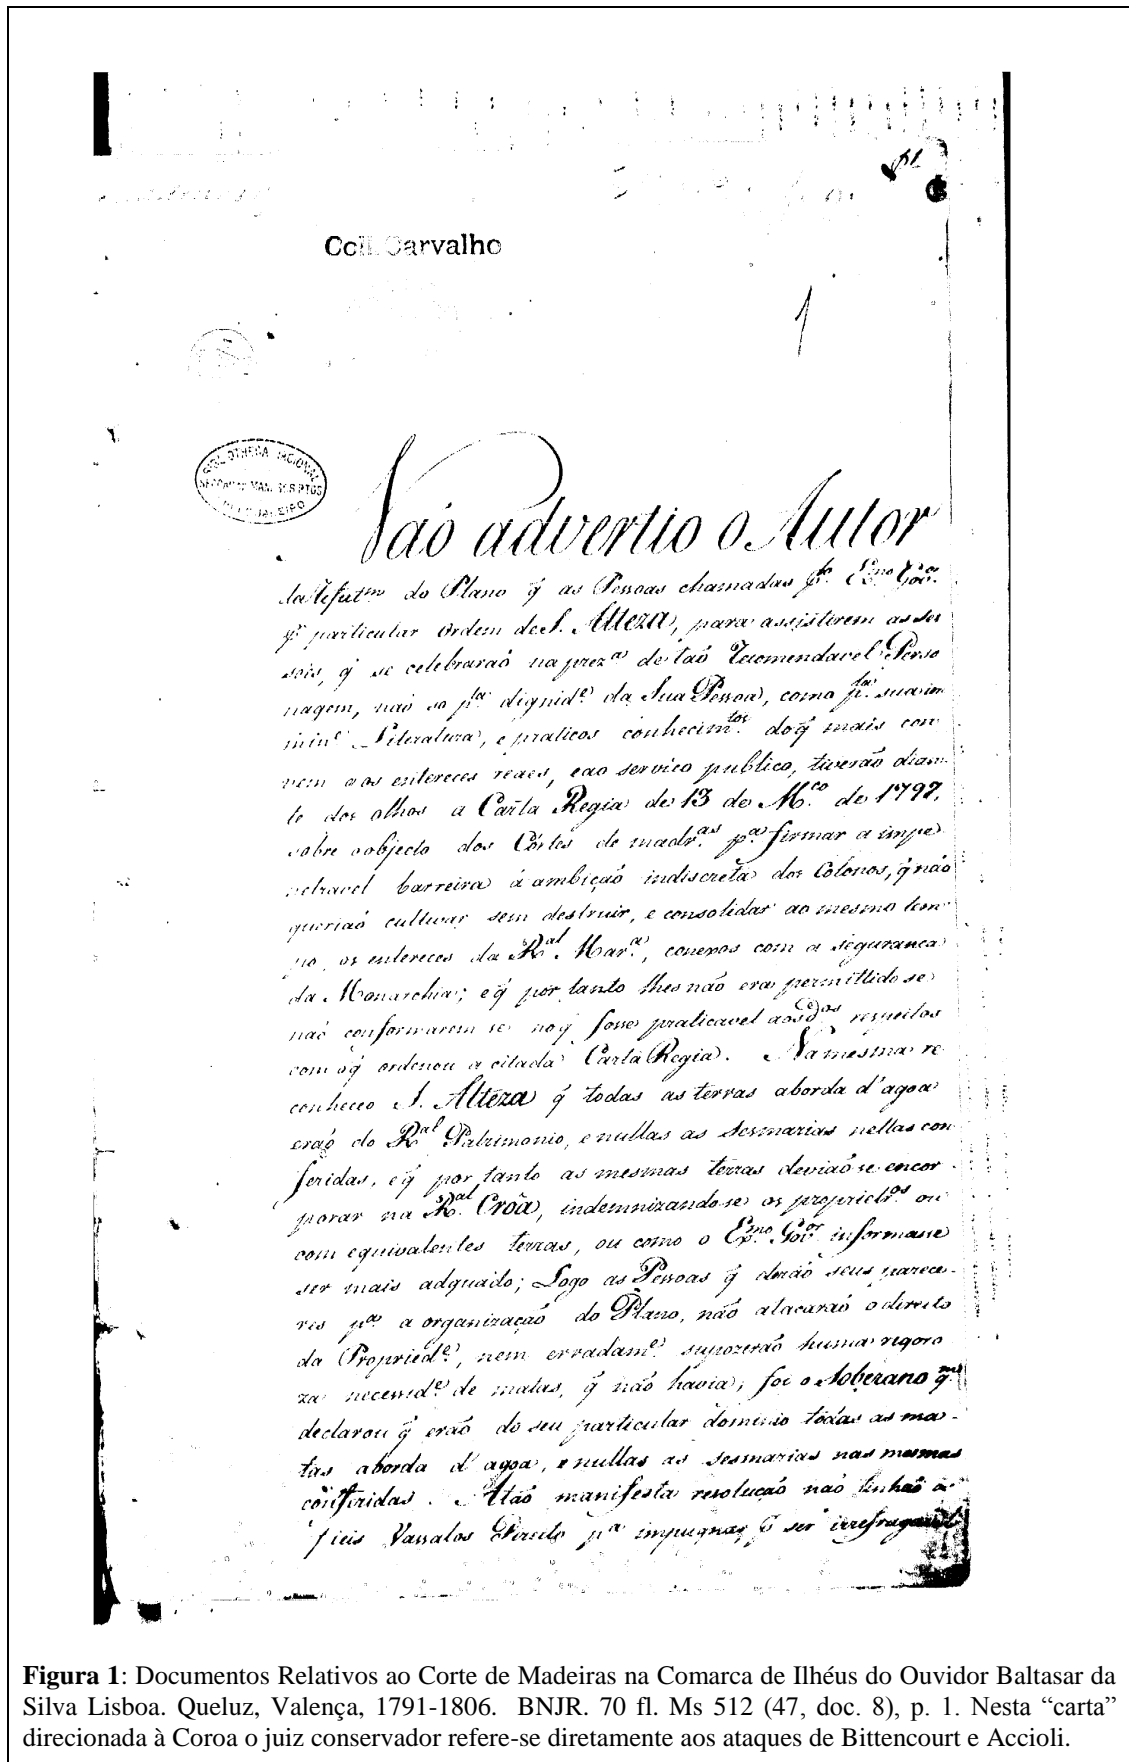 Coll. Carvalho
1
BIBLIOTHECA NACIONAL
SECÇÃO DE MANUSCRIPTOS
RIO DE JANEIRO
Naõ advertio o Autor
da Refut.am do Plano q̃ as Pessoas chamadas p.lo Ex.mo Gov.or
p.r particular Ordem de S. Alteza, para assistirem as Ses
sois, q̃ se celebraraõ na prez.a de taõ Recomendavel Perso
nagem, naõ so p.la dignid.e da Sua Pessoa, como p.la sua im
min.e Literatura, e praticos conhecim.tos do q̃ mais con
vem aos entereces reaes, e ao servico publico, tiverão dian
te dos olhos a Carta Regia de 13 de M.co de 1797,
sobre o objecto dos Córtes de madr.as p.a firmar a impe
netravel barreira á ambição indiscreta dos Colonos, q̃ não
queriaõ cultivar sem destruir, e consolidar ao mesmo tem
po, os entereces da R.al Mar.a, conexos com a seguranca
da Monarchia; e q̃ por tanto lhes não era permittido se
naõ conformarem se no q̃ fosse praticavel aos d.os respeitos
com o q̃ ordenou a citada Carta Regia. Na mesma re
conheceo S. Alteza q̃ todas as terras aborda d'agoa
eraõ do R.al Patrimonio, e nullas as Sesmarias nellas con
feridas, e q̃ por tanto as mesmas terras deviaõ se encor
porar na R.al Crôa, indemnizando se os propriet.os ou
com equivalentes terras, ou como o Ex.mo Gov.or informasse
ser mais adquado; Logo as Pessoas q̃ derão seus parece-
res p.a a organizaçaõ do Plano, não atacaraõ o direito
da Propried.e, nem erradam.e supozerão huma rigoro
za necessid.e de matas, q̃ não havia; foi o Soberano q.m
declarou q̃ eraõ do seu particular dominio todas as ma-
tas aborda d'agoa, e nullas as sesmarias nas mesmas
conferidas. A tão manifesta resolucaõ naõ tinhaõ os
fieis Vassalos Direito p.a impugnar, e ser irrefragavel
Figura 1: Documentos Relativos ao Corte de Madeiras na Comarca de Ilhéus do Ouvidor Baltasar da
Silva Lisboa. Queluz, Valença, 1791-1806. BNJR. 70 fl. Ms 512 (47, doc. 8), p. 1. Nesta “carta”
direcionada à Coroa o juiz conservador refere-se diretamente aos ataques de Bittencourt e Accioli.